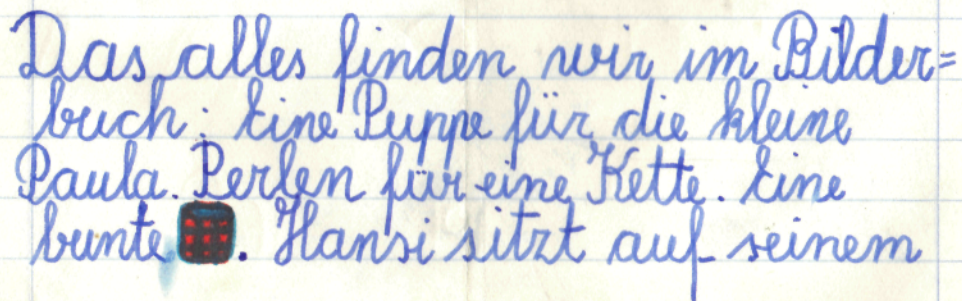 Das alles finden wir im Bilder=
buch: Eine Puppe für die kleine
Paula. Perlen für eine Kette. Eine
bunte . Hansi sitzt auf seinem